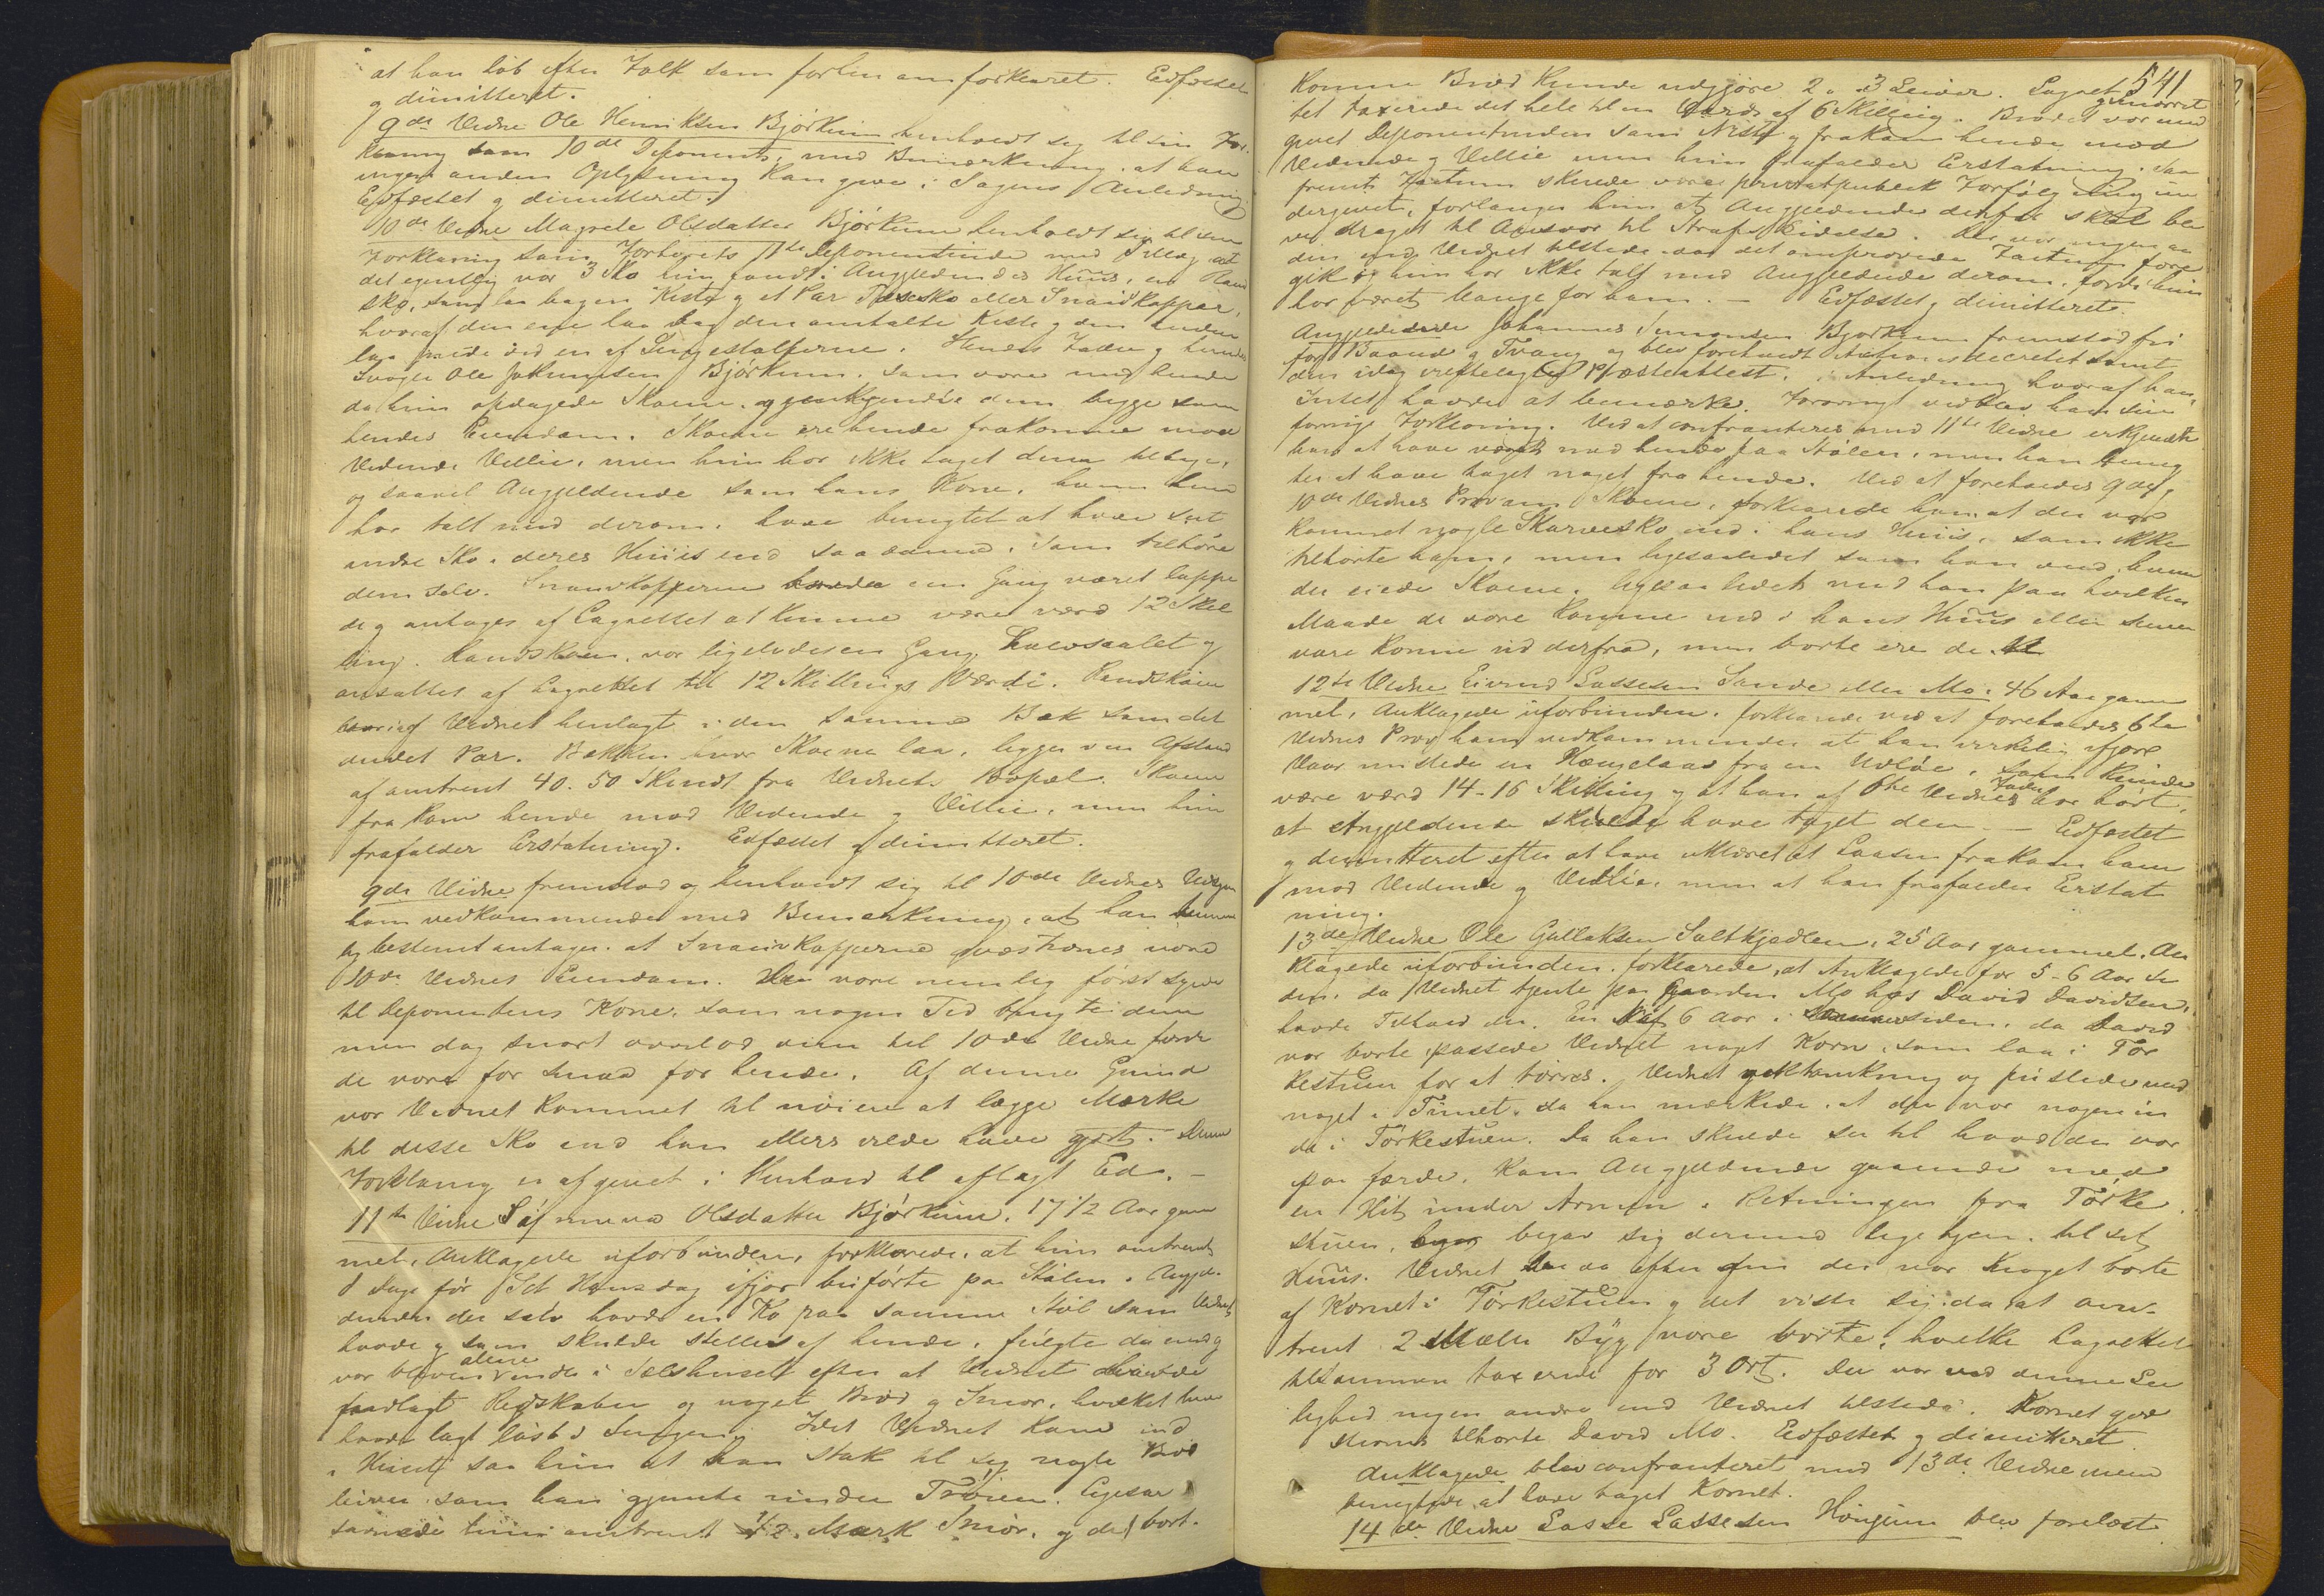 at han løb efter Folk som forhen anforklaret. Edfæstet
og dimitteret.
9de Vidne Ole Henriksen Bjørkum henholdt sig til sin For-
klaring som 10de Deponents, med Bemærkning, at han
ingen anden Oplysning kan give i Sagens Anledning
Edfæstet og dimitteret.
10de Vidne Magrete Olsdatter Bjørkum henholdt sig til sin
Forklaring som Forhørets 11te Deponentinde med Tillæg at
det egentlig var 3 Sko hun fandt i Angjeldendes Huus, en Rand
sko, som laa bagen Kiste og et Par Tæsko eller Snauvkapper,
hvoraf den ene laa bag den omtalte Kiste og den anden
laa ved en af Sengestolperne. Hendes Fader og hendes
Svoger Ole Johannesen Bjørkum, som vare med hende
da hun opdagede Skoene, gjenkjendte dem begge som
hendes Eiendom. Skoene ere hende frakomne mod
Vidende Villie, men hun har ikke taget dem tilbage,
og saavel Angjeldende som hans Kone, hvem hun
har talt med derom, have benegtet at have seet
andre Sko i deres Huus end saadanne, som tilhøre
dem selv. Snauvkapperne havde en Gang været lappe
de og antages af Lagrettet at kunne være værd 12 Skil
ling. Randskoen, var ligeledes en Gang halvsaalet og
ansattes af Lagrettet til 12 Skillings Værdi. Randskoen
var af Vidnet henlagte i den samme Bæk som det
andet Par. Bækken hvor Skoene laa, ligger i en Afstand
af omtrent 40-50 Skridt fra Vidnets Bopæl. Skoene
fra kom hende mod Vidende og Villie, men hun
frafalder Erstatning. Edfæstet og dimitteret.
9de Vidne fremstod og henholdt sig til 10de Vidnes Udsagn
ham vedkommende med Bemærkning, at han
og bestemt antager, at Snauvkapperne qvæstionis vare
10de Vidnes Eiendom. De vare nemlig først syede
til Deponentens Kone, som nogen Tid brugte dem
men dog snart overlod dem til 10de Vidne fordi
de vare for smaa for hende. Af denne Grund
var Vidnet kommet til nøiere at lægge Mærke
til disse Sko end han ellers vilde have gjort. Denne
Forklaring er afgivet i Henhold til aflagt Ed. -
11te Vidne Olsdatter Bjørkum, 17 1/2 Aar gam
mel, Anklagede uforbunden, forklarede, at hun omtrent
8 Dage før Sct Hansdag ifjor buførte paa Stølen. Angjel-
dende der selv havde en Ko paa samme Støl som Vidnet
havde og som skulde stelles af hende, fulgte da med og
var bleven alene i Sælshuset efter at Vidnet havde
fradlagt Redskaber og noget Brød og Smør, hvilket hun
havde lagt løst i Sengen. Idet Vidnet kom ind
i Huset saa hun at han stak til sig nogle Brød
leiver som han gjemte under Trøien. Ligesaa
savnede hun omtrent 1/2 Mark Smør, og det bort-
541
komne Brød kunde udgjøre 2 a 3 Leiver. Lagret
tet taxerede det hele til en Værdi af 6 Skilling. Brødet var uud
givet Deponentinden som Niste og frakom hende mod
Vidende og Villie men hun frafalder Erstatning. Saa
fremt Factum skulde være privat publick Forfølgning un
dergivet, forlanger hun at Angjeldende derfor skal bli
ve draget til Ansvar til Straf Lidelse. Der var ingen an
den end Vidnet tilstede da det ompr. Factum fore
gik og hun har ikke talt med Angjeldende derom, fordi hun
har været bange for ham. - Edfæstet og dimitteret.
Angjeldende Johannes Simonsen Bjørkum fremstod fri
for Baand og Tvang og blev foreholdt Actionsdecretet samt
den idag irettelagte Præsteattest, i Anledning hvoraf han
Intet havde at bemærke. Forøvrigt vedblev han sin
forrige Forklaring. Ved at confronteres med 11te Vidne erkjendte
han at have været med hende paa Stølen, men han beneg
ter at have taget noget fra hende. Ved at foreholdes 9de og
10de Vidnes Prov om Skoene, forklarede han at der var
kommet nogle Skarvesko ind i hans Huus, som ikke
tilhørte ham, men ligesaalidet som han veed hvem
der eiede Skoene, ligesaalidet veed han paa hvilken
Maade de vare komne ind i hans Huus eller
vare komne ud derfra, men borte ere de.
12te Vidne Eivind Lassesen Sande eller Mo, 46 Aar gam
mel, Anklagede uforbunden, forklarede ved at foreholdes 6te
Vidnes Prov ham vedkommende at han virkelig ifjor
Vaar mistede en Hængelaas fra en Udløe, som kunde
være værd 14-16 Skilling og at han af 6te Vidnes Fader har hørt,
at Angjeldende skulde have taget den. - Edfæstet
og dimitteret efter at have erklæret at Laasen frakom ham
mod Vidende og Villie, men at han frafalder Erstat
ning.
13de Vidne Ole Gullaksen Saltkjedlen, 25 Aar gammel, An
klagede uforbunden, forklarede, at Anklagede for 5-6 Aar si
den, da Vidnet tjente paa Gaarden Mo hos David Davidsen,
havde Tilhold der. En siden, da David
var borte, passede Vidnet noget Korn, som laa i Tør
kestuen for at tørres. Vidnet og puslede med
noget i Tunet, da han mærkede, at der var nogen in
de i Tørkestuen. Da han skulde see til hvad der var
paa færde, kom Angjeldende gaaende med
en Hit under Armen i Retningen fra Tørke
stuen, begav sig dermed lige hjem til sit
Huus. Vidnet saa da efter om der var Noget borte
af Kornet i Tørkestuen og det viste sig da at om-
trent 2 Mæler Byg vare borte, hvilke Lagrettet
tilsammen taxerede for 3 Ort. Der var ved denne Lei
lighed ingen andre end Vidnet tilstede. Kornet qvæ
stionis tilhørte David Mo. Edfæstet og dimitteret.
Anklagede blev confronteret med 13de Vidne men
benegtede at have taget Kornet.
14de Vidne Lasse Lassesen Hougum blev forelæst